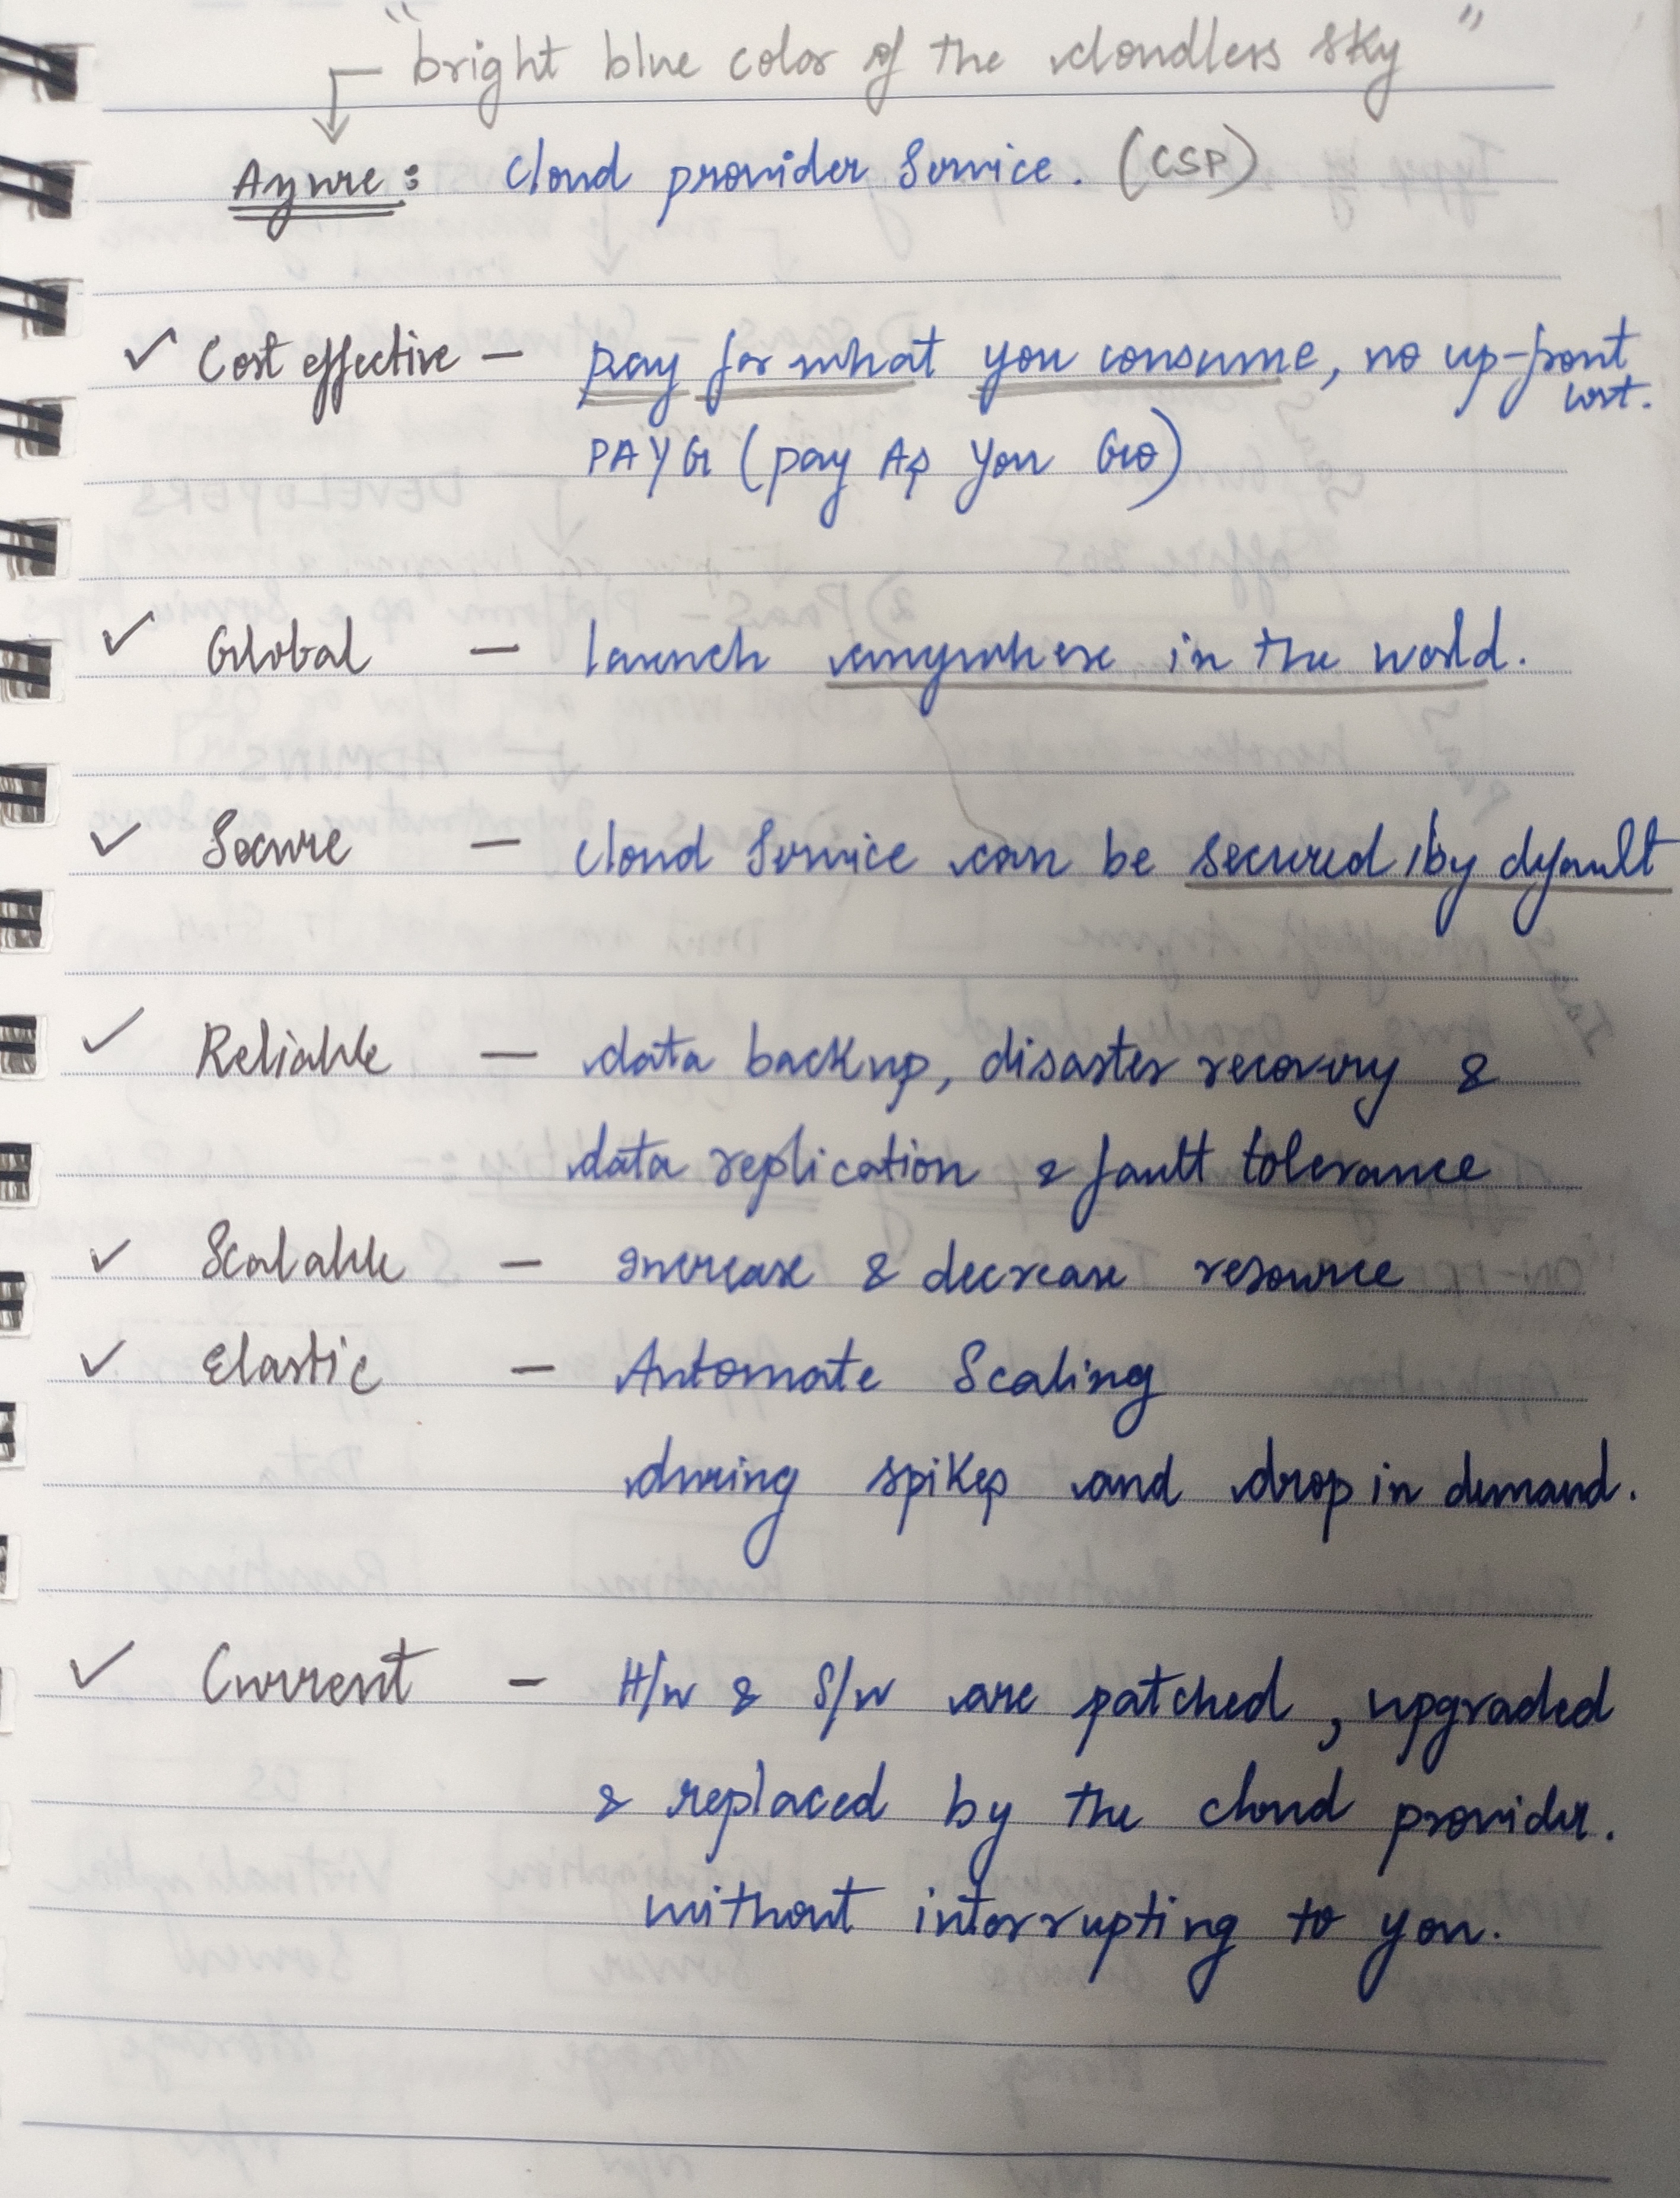 "bright blue color of the cloudless sky"
Azure: Cloud provider Service. (CSP)
✓ Cost effective — pay for what you consume, no up-front
cost.
PAYG (pay As You Go)
✓ Global — launch anywhere in the world.
✓ Secure — cloud Service can be secured by default
✓ Reliable — data backup, disaster recovery &
data replication & fault tolerance
✓ Scalable — increase & decrease resource
✓ Elastic — Automate Scaling
during spikes and drop in demand.
✓ Current — H/w & S/w are patched, upgraded
& replaced by the cloud provider.
without interrupting to you.